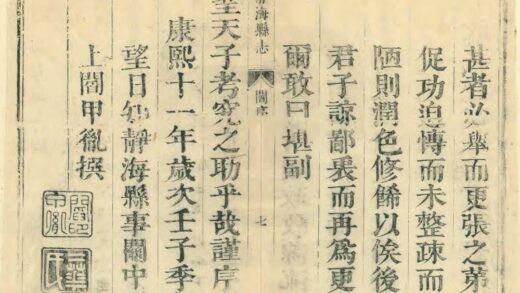 甚者必舉而更張之弟
促功迫慱而未整疎而
陋則潤色修餙以俟後
君子諒鄙裏而再爲更
爾敢曰堪副
靜海縣志
閻序
七
聖天子考究之助乎哉謹序
康熙十一年歲次壬子季
望日知靜海縣事關中
上閻甲胤撰